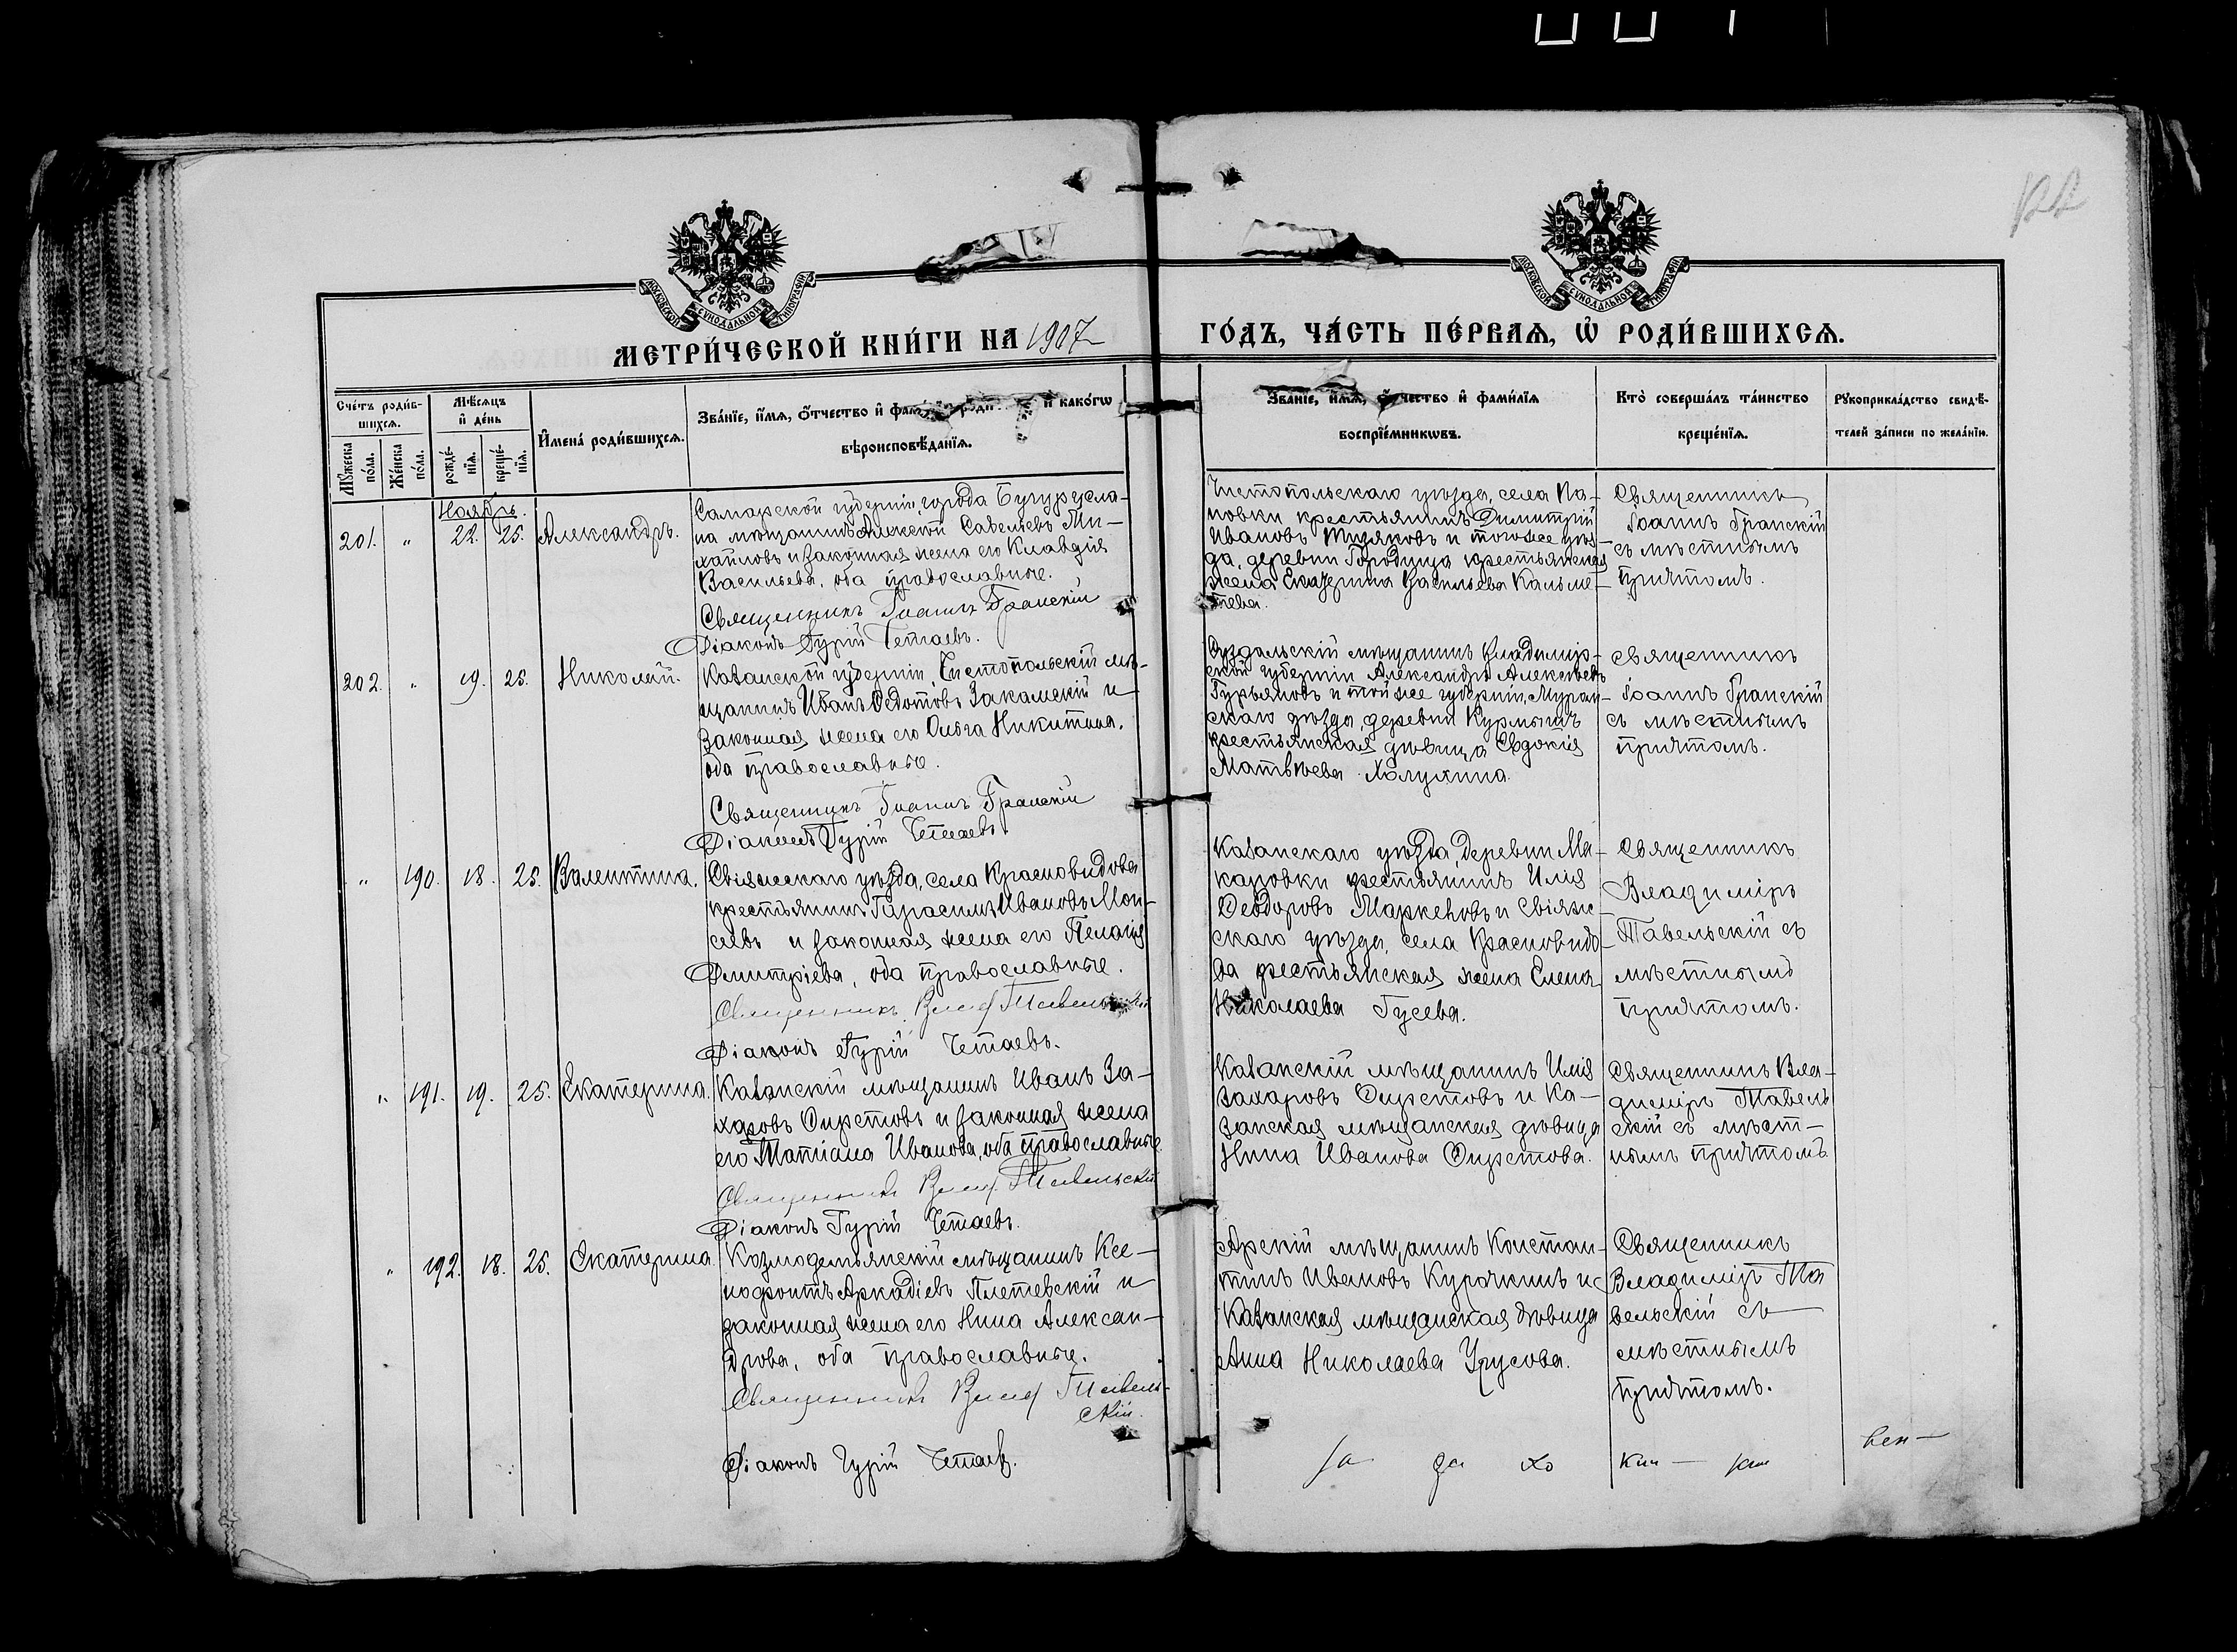 122
МОСКОВСКОЙ СѴНОДАЛЬНОЙ ТИПОГРАФІИ
МОСКОВСКОЙ СѴНОДАЛЬНОЙ ТИПОГРАФІИ
МЕТРИ́ЧЕСКОЙ КНИ́ГИ НА 1907
ГО́ДЪ, ЧА́СТЬ ПЕ́РВАЯ, Ѡ҆ РОДИ́ВШИХСЯ.
Сче́тъ роди́в-
шихся.
Мѣ́сяцъ
и҆ де́нь
Мꙋ́жеска
по́ла.
Же́нска
по́ла.
рожде́-
нїя.
креще́-
нїя.
И҆мена̀ роди́вшихся.
Зва́нїе, и҆́мя, о҆́тчество и҆ и҆ како́гѡ
вѣроисповѣ́данїя.
Зва́нїе, и҆́мя, о҆́тчество и҆ фами́лїя
воспрїе́мникѡвъ.
Кто̀ соверша́лъ та́инство
креще́нїя.
Рꙋкоприкла́дство свидѣ́-
телей за́писи по жела́нїю.
Ноябрь.
201. " 22. 25. Александръ.
Самарской губерніи, города Бугурусла-
на мѣщанинъ Алексѣй Савельевъ Ми-
хайловъ и законная жена его Клавдія
Васильева, оба православные.
Священникъ Іоаннъ Гранскій
Діаконъ Гурій Четаевъ.
Чистопольскаго уѣзда, села Ива-
новки крестьянинъ Димитрій
Ивановъ и того же уѣз-
да, деревни Городища крестьянская
жена Екатерина Васильева Кальме-
тева.
Священникъ
Іоаннъ Гранскій
съ мѣстнымъ
причтомъ.
202. " 19. 25. Николай.
Казанской губерніи, Чистопольскій мѣ-
щанинъ Иванъ Ѳедотовъ Закамскій и
законная жена его Ольга Никитина,
оба православные.
Священникъ Іоаннъ Гранскій
Діаконъ Гурій Четаевъ.
Суздальскій мѣщанинъ Владимир-
ской губерніи Александръ Алексѣевъ
Гурьяновъ и той же губерніи, Муром-
скаго уѣзда, деревни Курмышъ
крестьянская дѣвица Евдокія
Матвѣева
Священникъ
Іоаннъ Гранскій
съ мѣстнымъ
причтомъ.
" 190. 18. 25. Валентина.
Свіяжскаго уѣзда, села Красновидова
крестьянинъ Гарасимъ Ивановъ Мои-
сѣевъ и законная жена его Пелагія
Димитріева, оба православные.
Священникъ Влад. Тавельскій
Діаконъ Гурій Четаевъ.
Казанскаго уѣзда, деревни Ма-
каровки крестьянинъ Илія
Ѳеодоровъ Маркеловъ и Свіяж-
скаго уѣзда, села Красновидо-
ва крестьянская жена Елена
Николаева Гусева.
Священникъ
Владиміръ
Тавельскій съ
мѣстнымъ
причтомъ.
" 191. 19. 25. Екатерина.
Казанскій мѣщанинъ Иванъ За-
харовъ Ѳирстовъ и законная жена
его Татіана Иванова, оба православные.
Священникъ Влад. Тавельскій
Діаконъ Гурій Четаевъ.
Казанскій мѣщанинъ Илія
Захаровъ Ѳирстовъ и Ка-
занская мѣщанская дѣвица
Нина Иванова Ѳирстова.
Священникъ Вла-
диміръ Тавель-
скій съ мѣст-
нымъ причтомъ
" 192. 18. 25. Екатерина.
Козмодемьянскій мѣщанинъ Ксе-
нофонтъ Аркадіевъ Плетевскій и
законная жена его Нина Алексан-
дрова, оба православные.
Священникъ Влад. Тавель-
скій.
Діаконъ Гурій Четаевъ.
Арскій мѣщанинъ Констан-
тинъ Ивановъ Курочкинъ и
Казанская мѣщанская дѣвица
Анна Николаева Урусова.
Священникъ
Владиміръ Та
вельскій съ
мѣстнымъ
причтомъ.